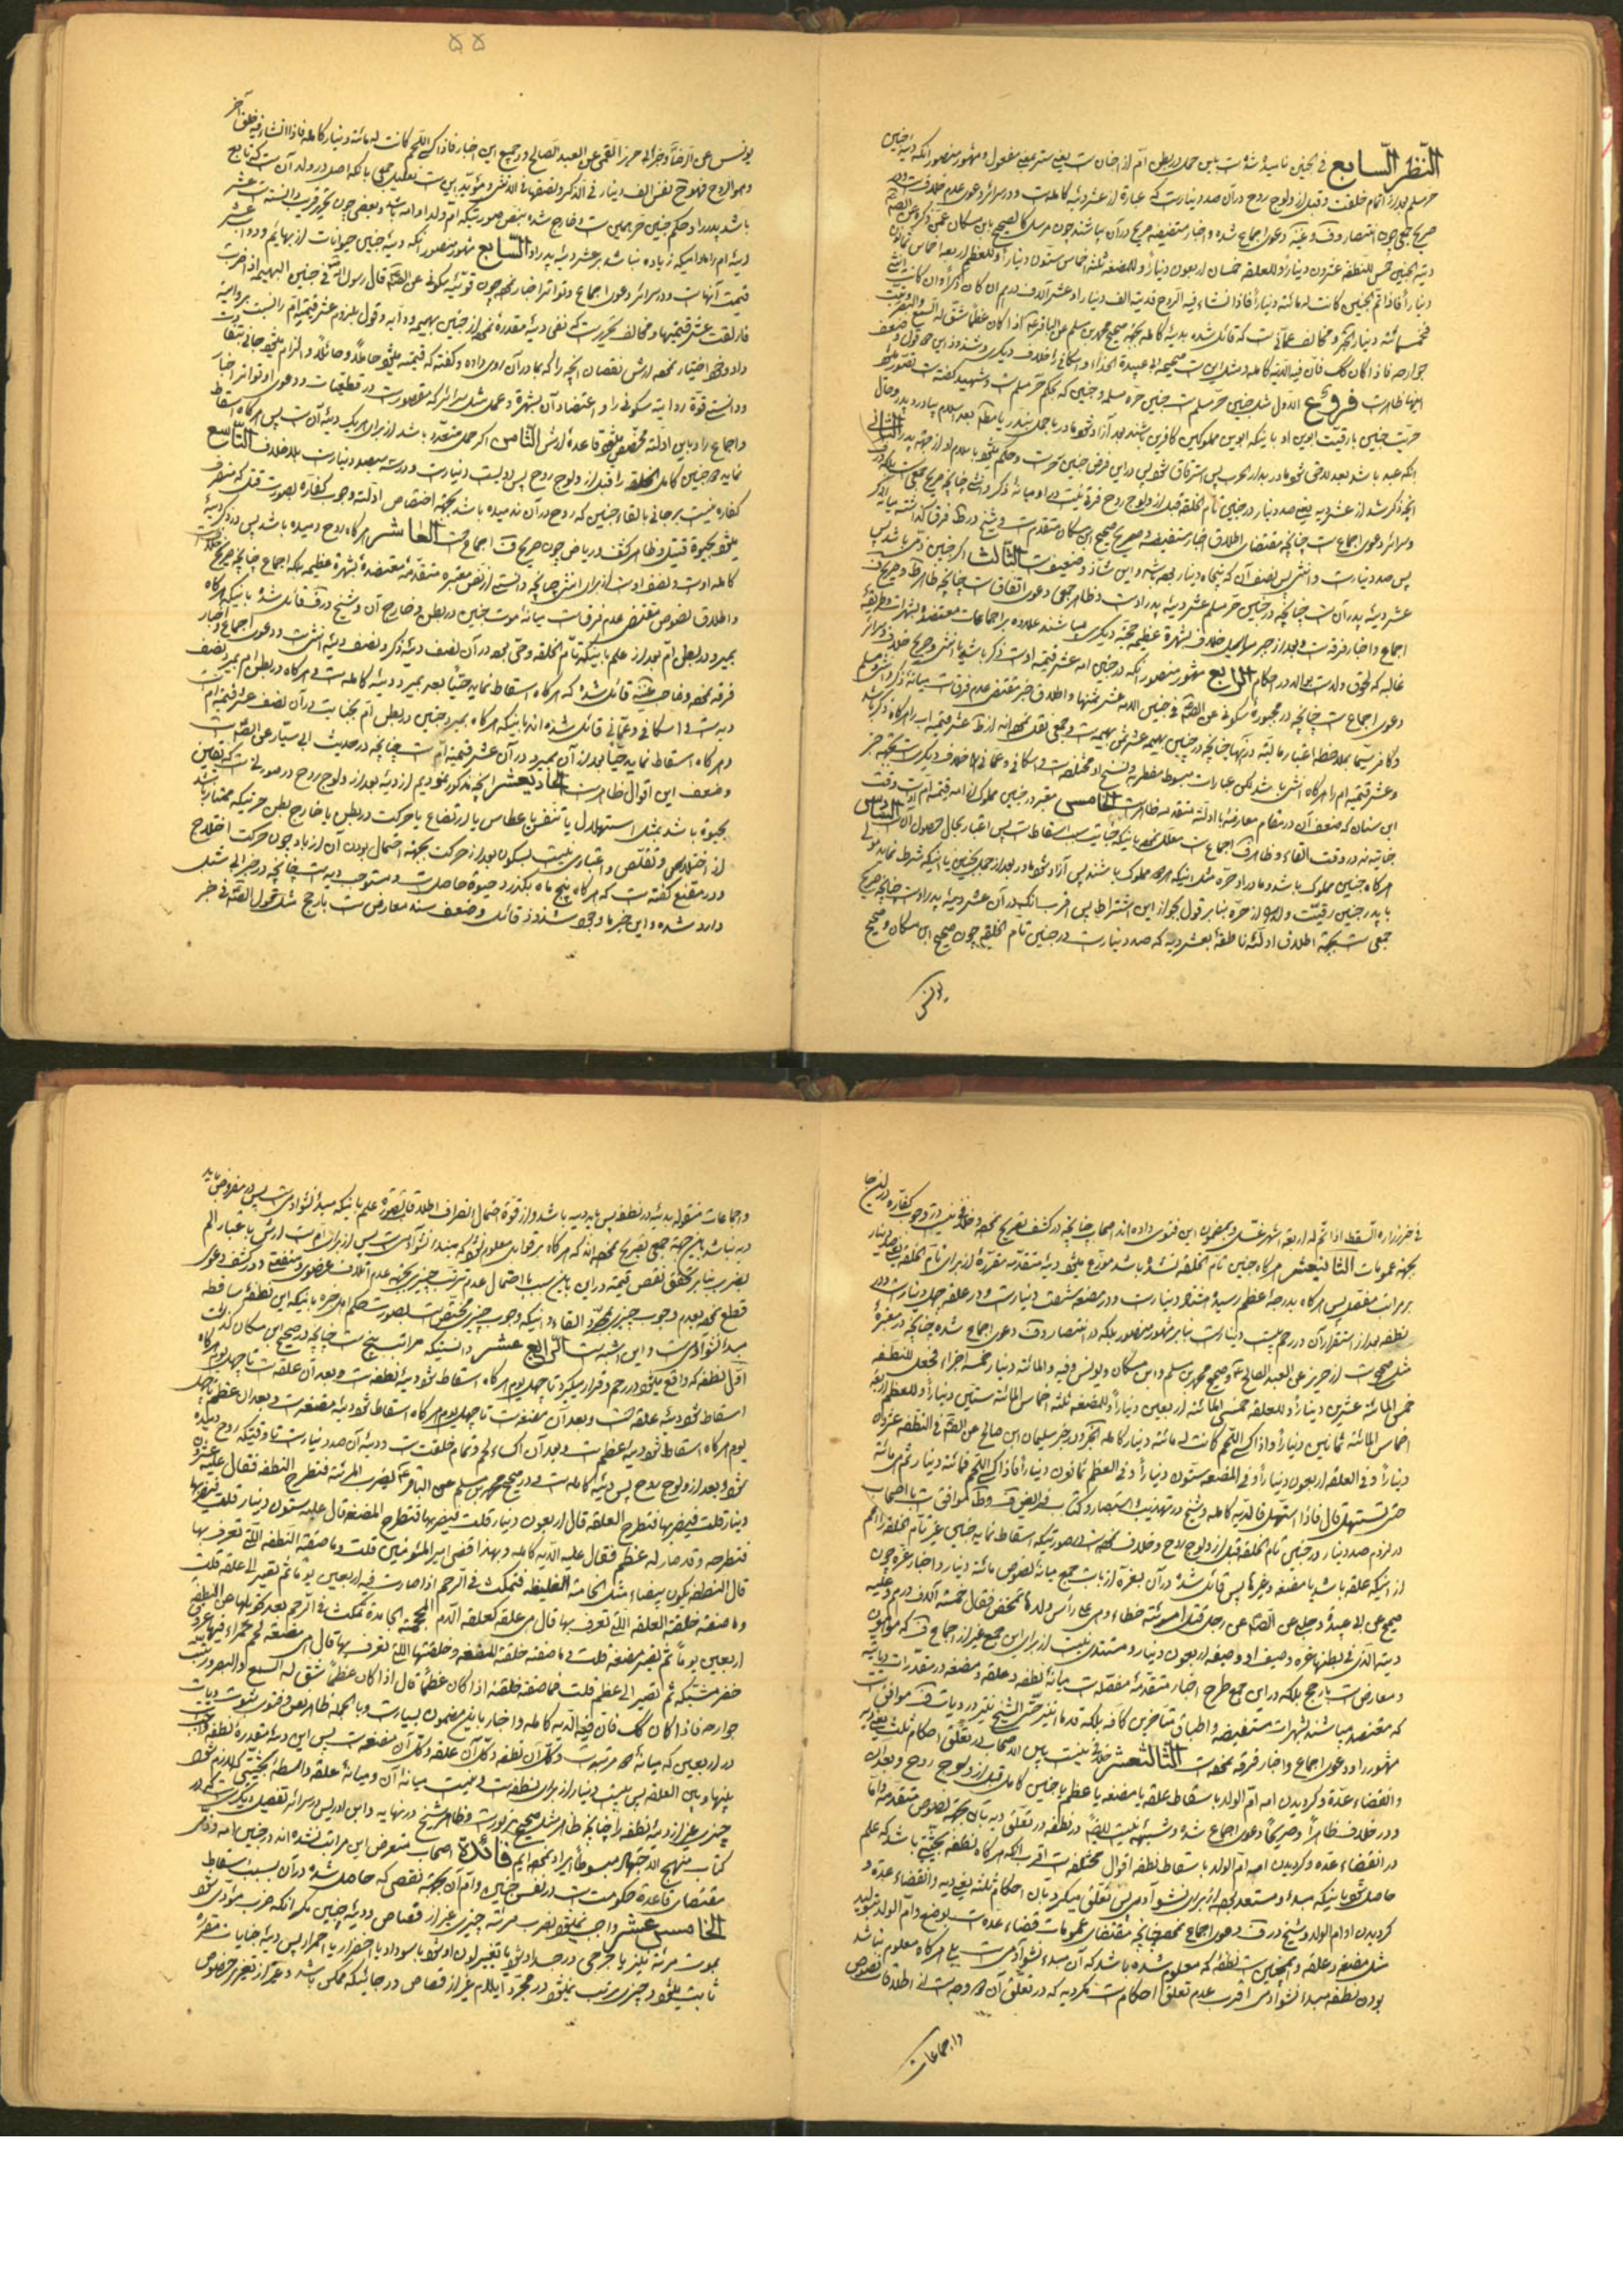 النّظر السّابع در جنین نامیده شده است باین حمل در بطن ام از اجنان است یعنی ستر بمعنی مفعول و مشهور منصور آنکه دیه جنین
حر مسلم بعد از اتمام خلقت و قبل از ولوج روح در آن صد دینار است که عبارة از عشر دیه کامله است و در سرائر دعوی عدم خلاف است
صریح جمعی چون انتصار وف وغنیه دعوی اجماع شده و اخبار مستفیضه صریح در آن میباشند چون مرسل کالصحیح بابن مسکان عمن ذکره عن الصم
دیة الجنین خمس للنطفة عشرون دیناراً و للعلقه خمسان اربعون دیناراً و للمضغه ثلثة اخماس ستون دیناراً و للعظم اربعة اخماس ثمانون
دیناراً فاذا تم الجنین کانت له مائة دیناراً فاذا انشاء فیه الروح فدیته الف دینار او عشرة آلاف درهم ان کان ذکراً و ان کان انثی
فخمسمائة دینار الخبر و مخالف عمانی است که قائل شده بدیه کامله بجهة صحیح محمد بن مسلم عن الباقر ع اذا کان عظماً شق له السمع و البصر
جوارحه فاذا کان کک فان فیه الدیة کامله و مثل این است صحیحه ابی عبیده الحذاء و اسکافی را خلاف دیگر
اینها ظاهر است فروع الاول مثل جنین حر مسلم است جنین حره مسلمه و جنین که بحکم حر مسلم است و شهید گفته است
حریت جنین با رقیت ابوین او باینکه ابوین مملوکین کافرین باشند
آنکه عبد باشد بعد ملحق شود مادر بدار الحرب پس استرقاق شود پس در این فرض جنین حر است و حکم میشود باسلام او از جهة پدر الثانی
آنچه ذکر شد از عشر دیه یعنی صد دینار در جنین تام الخلقه قبل از ولوج روح فرقی نیست در او میانه ذکر و انثی چنانچه صریح جمعی است
و سرائر دعوی اجماع است چنانچه مقتضای اطلاق اخبار مستفیضه و صریح صحیح ابن مسکان متقدم است و شیخ در ط فرق گذاشته میانه
پس صد دینار است و انثی پس نصف آن که پنجاه دینار بوده باشد و این شاذ و ضعیف است الثالث اگر جنین ذمی باشد پس
عشر دیه پدر آن است چنانچه در جنین حر مسلم عشر دیه پدر اوست و ظاهر جمعی دعوی اتفاق است چنانچه ظاهر ط و صریح ف
اجماع و اخبار فرقه است
غالبه که لحوق ولد است بوالد در احکام الرابع مشهور منصور آنکه در جنین امه عشر قیمة امه اوست ذکر باشد یا انثی و صریح خلاف و سرائر
دعوی اجماع است چنانچه در مجبوره سکونی عن الصم فی جنین الامه عشر ثمنها و اطلاق خبر مقتضی عدم فرق است میانه ذکر و انثی و مسلم
و کافر سیما بملاحظه اعتبار مالیت در آنها چنانچه در جنین بهیمه عشر ثمن بهیمه است و جمعی نقل نموده اند از ط عشر قیمة اب را هرگاه ذکر باشد
و عشر قیمة ام را هرگاه انثی باشد لکن عبارات مبسوط مضطربه و نسخ او مختلفه است و اسکافی و عمانی را خلاف دیگر است بجهة خبر
ابن سنان که ضعف آن در مقام معارضه با ادله متقدمه ظاهر است الخامس معتبر در جنین مملوک از امه قیمة ام است وقت
جنایة نه در وقت القاء و ظاهر ف اجماع است معلل نموده باینکه جنایت سبب اسقاط است پس اعتبار بحال حصول آن السادس
هرگاه جنین مملوک باشد و مادر او حره مثل اینکه هر دو مملوک باشند پس آزاد شود مادر بعد از حمل بجنین یا اینکه شرط نماید مولی
با پدر جنین رقیت ولد او از حره بنا بر قول بجواز این اشتراط پس اقرب آنکه در آن عشر دیه پدر اوست چنانچه صریح
جمعی است بجهة اطلاق ادله ناطقه بعشر دیه که صد دینار است در جنین تام الخلقه چون صحیح ابن مسکان و صحیح
یونس
۵۵
یونس عن الرضا و خبر ابی حریز القمی عن العبد الصالح و در جمیع این اخبار فاذا کسی اللحم کانت له مائة دینار کامله فاذا انشاء فیه خلق آخر
وهو الروح فهو ح نفس الف دینار فی الذکر و نصفها فی الانثی و مؤید این است تعلیل جمعی بانکه اصل در ولد آن است که تابع
باشد پدر را در حکم جنین حر همین است و خارج شده
دیه ام را مادامیکه زیاده نباشد بر عشر دیه پدر او السابع مشهور منصور آنکه دیه جنین حیوانات از بهایم و دواب عشر
قیمت آنهاست و در سرائر دعوی اجماع و تواتر اخبار نموده چون قویه سکونی عن الصم قال رسول الله فی جنین البهیمه اذا ضربت
فازلقت عشر قیمتها و مخالف تحریر است که نفی دیه مقدره نموده از جنین بهیمه و دابه و قول بلزوم عشر قیمة ام را نسبت بروایة
داده و خود اختیار نموده ارش نقصان آنچه را که بمادر آن روی داده و گفته که قیمت میشود حاملاً و حائلاً و الزام میشود جانی بتفاوت
و دانستی قوة روایة سکونی را و اعتضاد آن بشهرة و عمل مثل سرائر که مقصور است در قطعیات و دعوی او تواتر اخبار
و اجماع را و باین ادله مخصص میشود قاعده ارش الثامن اگر حمل متعدد باشد از برای هر یک دیه آن است پس هرگاه اسقاط
نماید دو جنین کامل الخلقه را قبل از ولوج روح پس دویست دینار است و در سه سیصد دینار است بلاخلاف التاسع
کفاره نیست بر جانی بالقاء جنین که روح در آن ندمیده باشد بجهة اختصاص ادله وجوب کفاره بصورت قتل که منصرف
میشود بحیوة قتیل و ظاهر کشف و ریاض چون صریح ف اجماع است العاشر هرگاه روح دمیده باشد پس در ذکر دیه
کامله اوست و نصف اوست از برای انثی چنانچه دانستی از نص معتبره متقدمه معتضده بشهرة عظیمه بلکه اجماع چنانچه صریح
و اطلاق نصوص مقتضی عدم فرق است میانه موت جنین در بطن و خارج آن و شیخ در ف قائل شده باینکه هرگاه
بمیرد در بطن ام بعد از علم باینکه تام الخلقه و حی بوده در آن نصف دیه ذکر و نصف دیه انثی است و دعوی اجماع و اخبار
فرقه نموده و صاحب غنیه قائل شده که هرگاه اسقاط نماید حیاً بعد بمیرد دیه کامله است و هرگاه در بطن ام بمیرد نصف
دیه است و اسکافی و عمانی قائل شده اند باینکه هرگاه بمیرد جنین در بطن ام بجنایت در آن نصف عشر قیمة ام است
و هرگاه اسقاط نماید حیاً بعد از آن بمیرد در آن عشر قیمة ام است چنانچه در حدیث ابی سیار عن الصم است
و ضعف این اقوال ظاهر است الحادیعشر آنچه مذکور نمودیم از دیه بعد از ولوج روح در صورتی است که یقین
بحیوة باشد بمثل استهلال یا تنفس یا عطاس یا ارتضاع یا حرکت در بطن یا خارج بطن حرکتیکه ممتاز باشد
از اختلاجی و تقلص و اعتباری نیست بسکون بعد از حرکت بجهة احتمال بودن آن از باد چون حرکت اختلاج
و در مقنع گفته است که هرگاه پنج ماه بگذرد حیوة حاصل است و مستوجب دیه است چنانچه در خبر ابی شبل
وارد شده و این خبر با وجود شذوذ قائل و ضعف سند معارض است بارجح مثل قول الصم در خبر
فی خبر زراره السقط اذا تم له اربعة اشهر غسل و بمضمون این فتوی داده اند اصحاب چنانچه در کشف تصریح نموده و خلافی نیست در وجوب کفاره در اینجا
بجهة عمومات الثانیعشر هرگاه جنین تام الخلقه نشده باشد موزع میشود دیه متقدمه مقرره از برای تام الخلقه یعنی صد دینار
بر مراتب مفصله پس هرگاه بدرجه عظم رسیده هشتاد دینار است و در مضغه شصت دینار است و در علقه چهل دینار است و در
نطفه بعد از استقرار آن در رحم بیست دینار است بنا بر مشهور منصور بلکه در انتصار وف دعوی اجماع شده چنانچه در معتبره
مثل صحیح است از حریز عن العبد الصالح و صحیح محمد بن مسلم و ابن مسکان و یونس و فیه و المائة دینار خمسة اجزاء فجعل للنطفه
خمس المائة عشرین دیناراً و للعلقه خمسی المائة اربعین دیناراً و للمضغه ثلثة اخماس المائة ستین دیناراً و للعظم اربعة
اخماس المائة ثمانین دیناراً و اذا کسی اللحم کانت له مائة دینار کامله الخبر و در خبر سلیمان ابن صالح عن الصم فی النطفه عشرون
دیناراً و فی العلقه اربعون دیناراً و فی المضغه ستون دیناراً و فی العظم ثمانون دیناراً فاذا کسی اللحم فمائة دینار ثم هی مائة
حتی تستهل قال فاذا استهل فالدیه کامله و شیخ در تهذیب و استبصار
در لزوم صد دینار در جنین تام الخلقه قبل از ولوج روح و خلاف نموده است در صورتیکه اسقاط نماید جنین غیر تام الخلقه را اعم
از اینکه علقه باشد یا مضغه و غیرها پس قائل شده در آن بغره از باب جمع میانه نصوص مائة دینار و اخبار غره چون
صحیح ابی عبیده و حلبی عن الصم عن رجل قتل امرأة خطاء و هی علی رأس ولدها تمخض فقال خمسة آلاف درهم و علیه
دیة الذی فی بطنها غره وصیف او وصیفه او اربعون دینار و مستندی نیست از برای این جمع غیر از اجماع ف که موهون
و معارض است بارجح بلکه در این جمع طرح اخبار متقدمه مفصله است میانه نطفه و علقه و مضغه در مقدرات
که معتضده میباشند بشهرت مستفیضه و اطباق متاخرین کافه بلکه قدما ایضاً حتی الشیخ نیز در دیات ف موافق
مشهور را و دعوی اجماع و اخبار فرقه نموده است الثالثعشر خلافی نیست میان اصحاب در تعلق احکام ثلث یعنی دیه
و انقضاء عده و گردیدن امه ام الولد باسقاط علقه یا مضغه یا عظم یا جنین کامل قبل از ولوج روح و بعد از آن
و در خلاف ظاهراً و صریحاً دعوی اجماع شده و شبهه نیست ایضاً در نطفه در تعلق دیه بآن بجهة نصوص متقدمه و اما
در انقضاء عده و گردیدن امه ام الولد باسقاط نطفه اقوال مختلفه است اقرب آنکه هرگاه نطفه بحیثیتی باشد که علم
حاصل شود باینکه مبدء و مستعد بوده از برای نشو آدمی پس تعلق میگیرد بآن احکام ثلثه یعنی دیه و انقضاء عده و
گردیدن او ام الولد و شیخ در ف دعوی اجماع نموده چنانچه مقتضای عمومات قضاء عده است بوضع و ام الولد
مثل مضغه و علقه و همچنین است نطفه که معلوم شده باشد که آن مبدء نشو آدمی است بلی هرگاه معلوم نباشد
بودن نطفه مبدء نشو آدمی اقرب عدم تعلق احکام است مگر دیه که در تعلق آن دو وجه است از اطلاق نصوص
و اجماعات
و اجماعات منقوله بدیه در نطفه پس باید دیه باشد و از قوة احتمال انصراف اطلاقات بصورة علم باینکه مبدء نشو آدمی است پس در مفروض باید
دیه نباشد باین جهة جمعی تصریح نموده اند که هرگاه بر قوابل معلوم نشود که مبدء نشو آدمی است پس از برای او است ارش باعتبار الم
بضرب بنا بر تحقق نقص قیمة در این باین سبب با احتمال عدم ترتب چیزی بجهة عدم اتلاف عضوی و منفعتی و در کشف دعوی
قطع نموده بعدم وجوب چیزی بمجرد القاء و اینکه وجوب چیزی مختص است بصورت حکم اهل خبره باینکه این نطفه ساقطه
مبدء نشو آدمی است و این اشبه است الرابع عشر دانستیکه مراتب پنج است چنانچه در صحیح ابن مسکان گذشت
اول نطفه که واقع میشود در رحم و قرار میگیرد تا چهل یوم هرگاه اسقاط شود دیه نطفه است و بعد آن علقه است تا چهل یوم هرگاه
اسقاط شود دیه علقه است و بعد آن مضغه است تا چهل یوم هرگاه اسقاط شود دیه مضغه است و بعد از آن عظم تا چهل
یوم هرگاه اسقاط شود دیه عظم است و بعد آن اکساء لحم و تمام خلقت است و دیه آن صد دینار است تا وقتیکه روح دمیده
شود و بعد از ولوج روح پس دیه او کامله است و در صحیح محمد بن مسلم عن الباقر ع یضرب المرئة فتطرح النطفه فقال علیه عشرون
دینار قلت فیضربها فتطرح العلقه قال اربعون دینار قلت فیضربها فتطرح المضغه قال علیه ستون دینار قلت فیضربها
فتطرحه و قد صار له عظم فقال علیه الدیه کامله و بهذا قضی امیرالمؤمنین قلت و ما صفة النطفه التی تعرف بها
قال النطفه یکون بیضاء مثل النخامة الغلیظه فتمکث فی الرحم اذا صارت فیه اربعین یوماً ثم تصیر الی علقه قلت
و ما صفة خلقة العلقه التی تعرف بها قال هی علقه کعلقه الدم المحجمة الجامدة تمکث فی الرحم بعد تحویلها عن النطفه
اربعین یوماً ثم تصیر مضغه قلت و ما صفة خلقة المضغه و خلقتها التی تعرف بها قال هی مضغة لحم حمراء فیها عروق
خضر مشتبکه ثم تصیر الی عظم قلت فما صفة خلقته اذا کان عظماً قال اذا کان عظماً شق له السمع و البصر و رتبت
جوارحه فاذا کان کک فان فیه الدیه کامله و اخبار باین مضمون بسیار است و بالجمله ظاهر نص و فتوی ثبوت دیات
در اربعین که میانه هر دو مرتبه است و کل آن نطفه و کل آن علقه و کل آن مضغه است پس این دیه مقدره نطفه واجب
بینهما و بین العلقه پس بیست دینار از برای نطفه است و نیست میانه آن و میانه علقه واسطه بحیثیتی که لازم شود
چیزی غیر از دیه نطفه را چنانچه ظاهر مثل صحیح مزبور است و ظاهر شیخ در نهایه و ابن ادریس در سرائر تفصیل دیگری است که در
کتاب منهج الاجتهاد مبسوطاً ایراد نموده ایم فائدة اصحاب متعرض این مراتب نشده اند در جنین امه و ذمی
مقتضای قاعدة حکومت است در نفس جنین و ام آن بجهة نقصی که حاصل شده در آن بسبب اسقاط
الخامس عشر واجب نمیشود بضرب مرئه چیزی غیر از قصاص و دیه جنین مگر آنکه ضرب مؤدی شود
بموت مرئه نیز یا جرحی در جسد او شود یا تغییر لون او شود باسوداد یا اخضرار یا احمرار پس دیه جنایات مقرره
ثابت میشود و چیزی مرتب نمیشود در مجرد ایلام غیر از قصاص در جائیکه ممکن باشد و غیر از تعزیر در خصوص